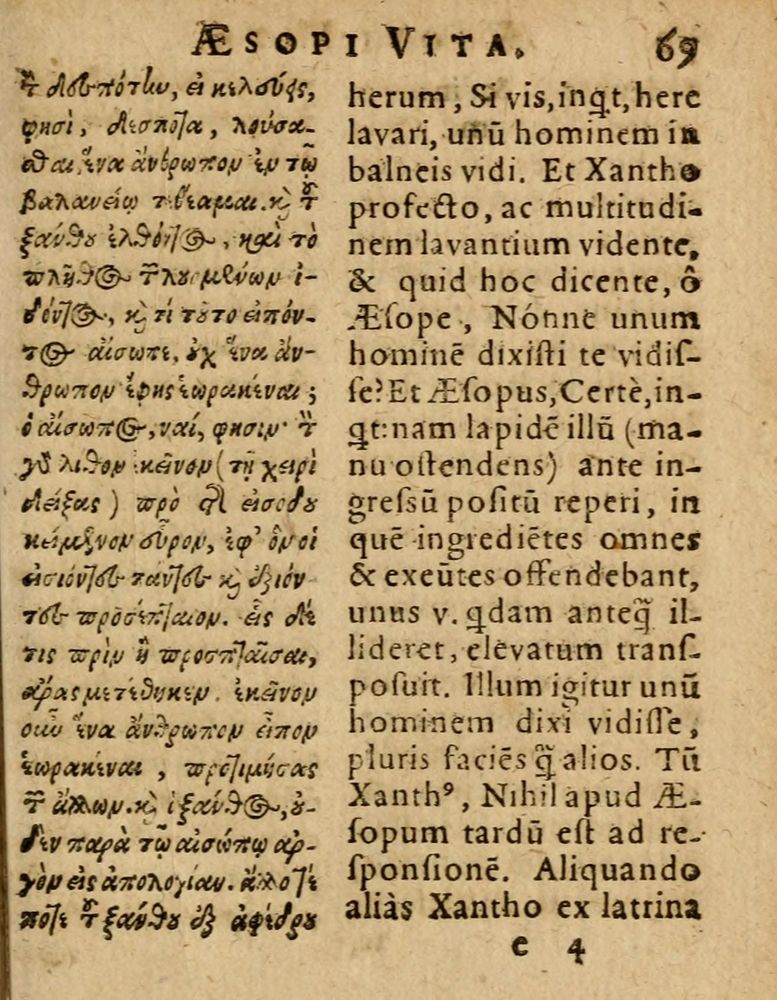 ÆSOPI VITA. 69
τ̀ δεσπότην, εἰ κελεύεις,
φησὶ, δέσποτα, λούσα-
σθαι ἕνα ἄνθρωπον ἐν τῷ
βαλανείῳ τεθέαμαι. καὶ τοῦ
ξάνθου ἐλθόντος, καὶ τὸ
πλῆθος τῶν λουομένων ἰ-
δόντος, καὶ τί τοῦτο εἰπόν-
τος αἴσωπε, οὐχ ἕνα ἄν-
θρωπον ἔφης ἑωρακέναι;
ὁ αἴσωπος, ναί, φησιν· τὸν
γὰρ λίθον κεῖνον (τῇ χειρὶ
δείξας) πρὸ τῆς εἰσόδου
κείμενον εὗρον, ἐφ' ὃν οἱ
εἰσιόντες πάντες καὶ ἐξιόν
τες προσέπταιον. εἷς δέ
τις πρὶν ἢ προσπταῖσαι,
ἄρας μετέθηκεν. ἐκεῖνον
οὖν ἕνα ἄνθρωπον εἶπον
ἑωρακέναι, προτιμήσας
τῶν ἄλλων. καὶ ὁ ξάνθος, οὐ-
δὲν παρὰ τῷ αἰσώπῳ ἀρ-
γὸν εἰς ἀπολογίαν. ἄλλοτέ
ποτε τοῦ ξάνθου ἐξ ἀφέδρου
herum, Si vis, inq̃t, here
lavari, unū hominem in
balneis vidi. Et Xantho
profecto, ac multitudi-
nem lavantium vidente,
& quid hoc dicente, ô
Æsope, Nónne unum
hominē dixisti te vidis-
se? Et Æsopus, Certè, in-
q̃t: nam lapidē illū (ma-
nu ostendens) ante in-
gressū positū reperi, in
quē ingrediētes omnes
& exeūtes offendebant,
unus v. q̃dam anteq̃ il-
lideret, elevatum trans-
posuit. Illum igitur unū
hominem dixi vidisse,
pluris faciēs q̃ alios. Tū
Xanthꝰ, Nihil apud Æ-
sopum tardū est ad re-
sponsionē. Aliquando
aliàs Xantho ex latrina
e 4